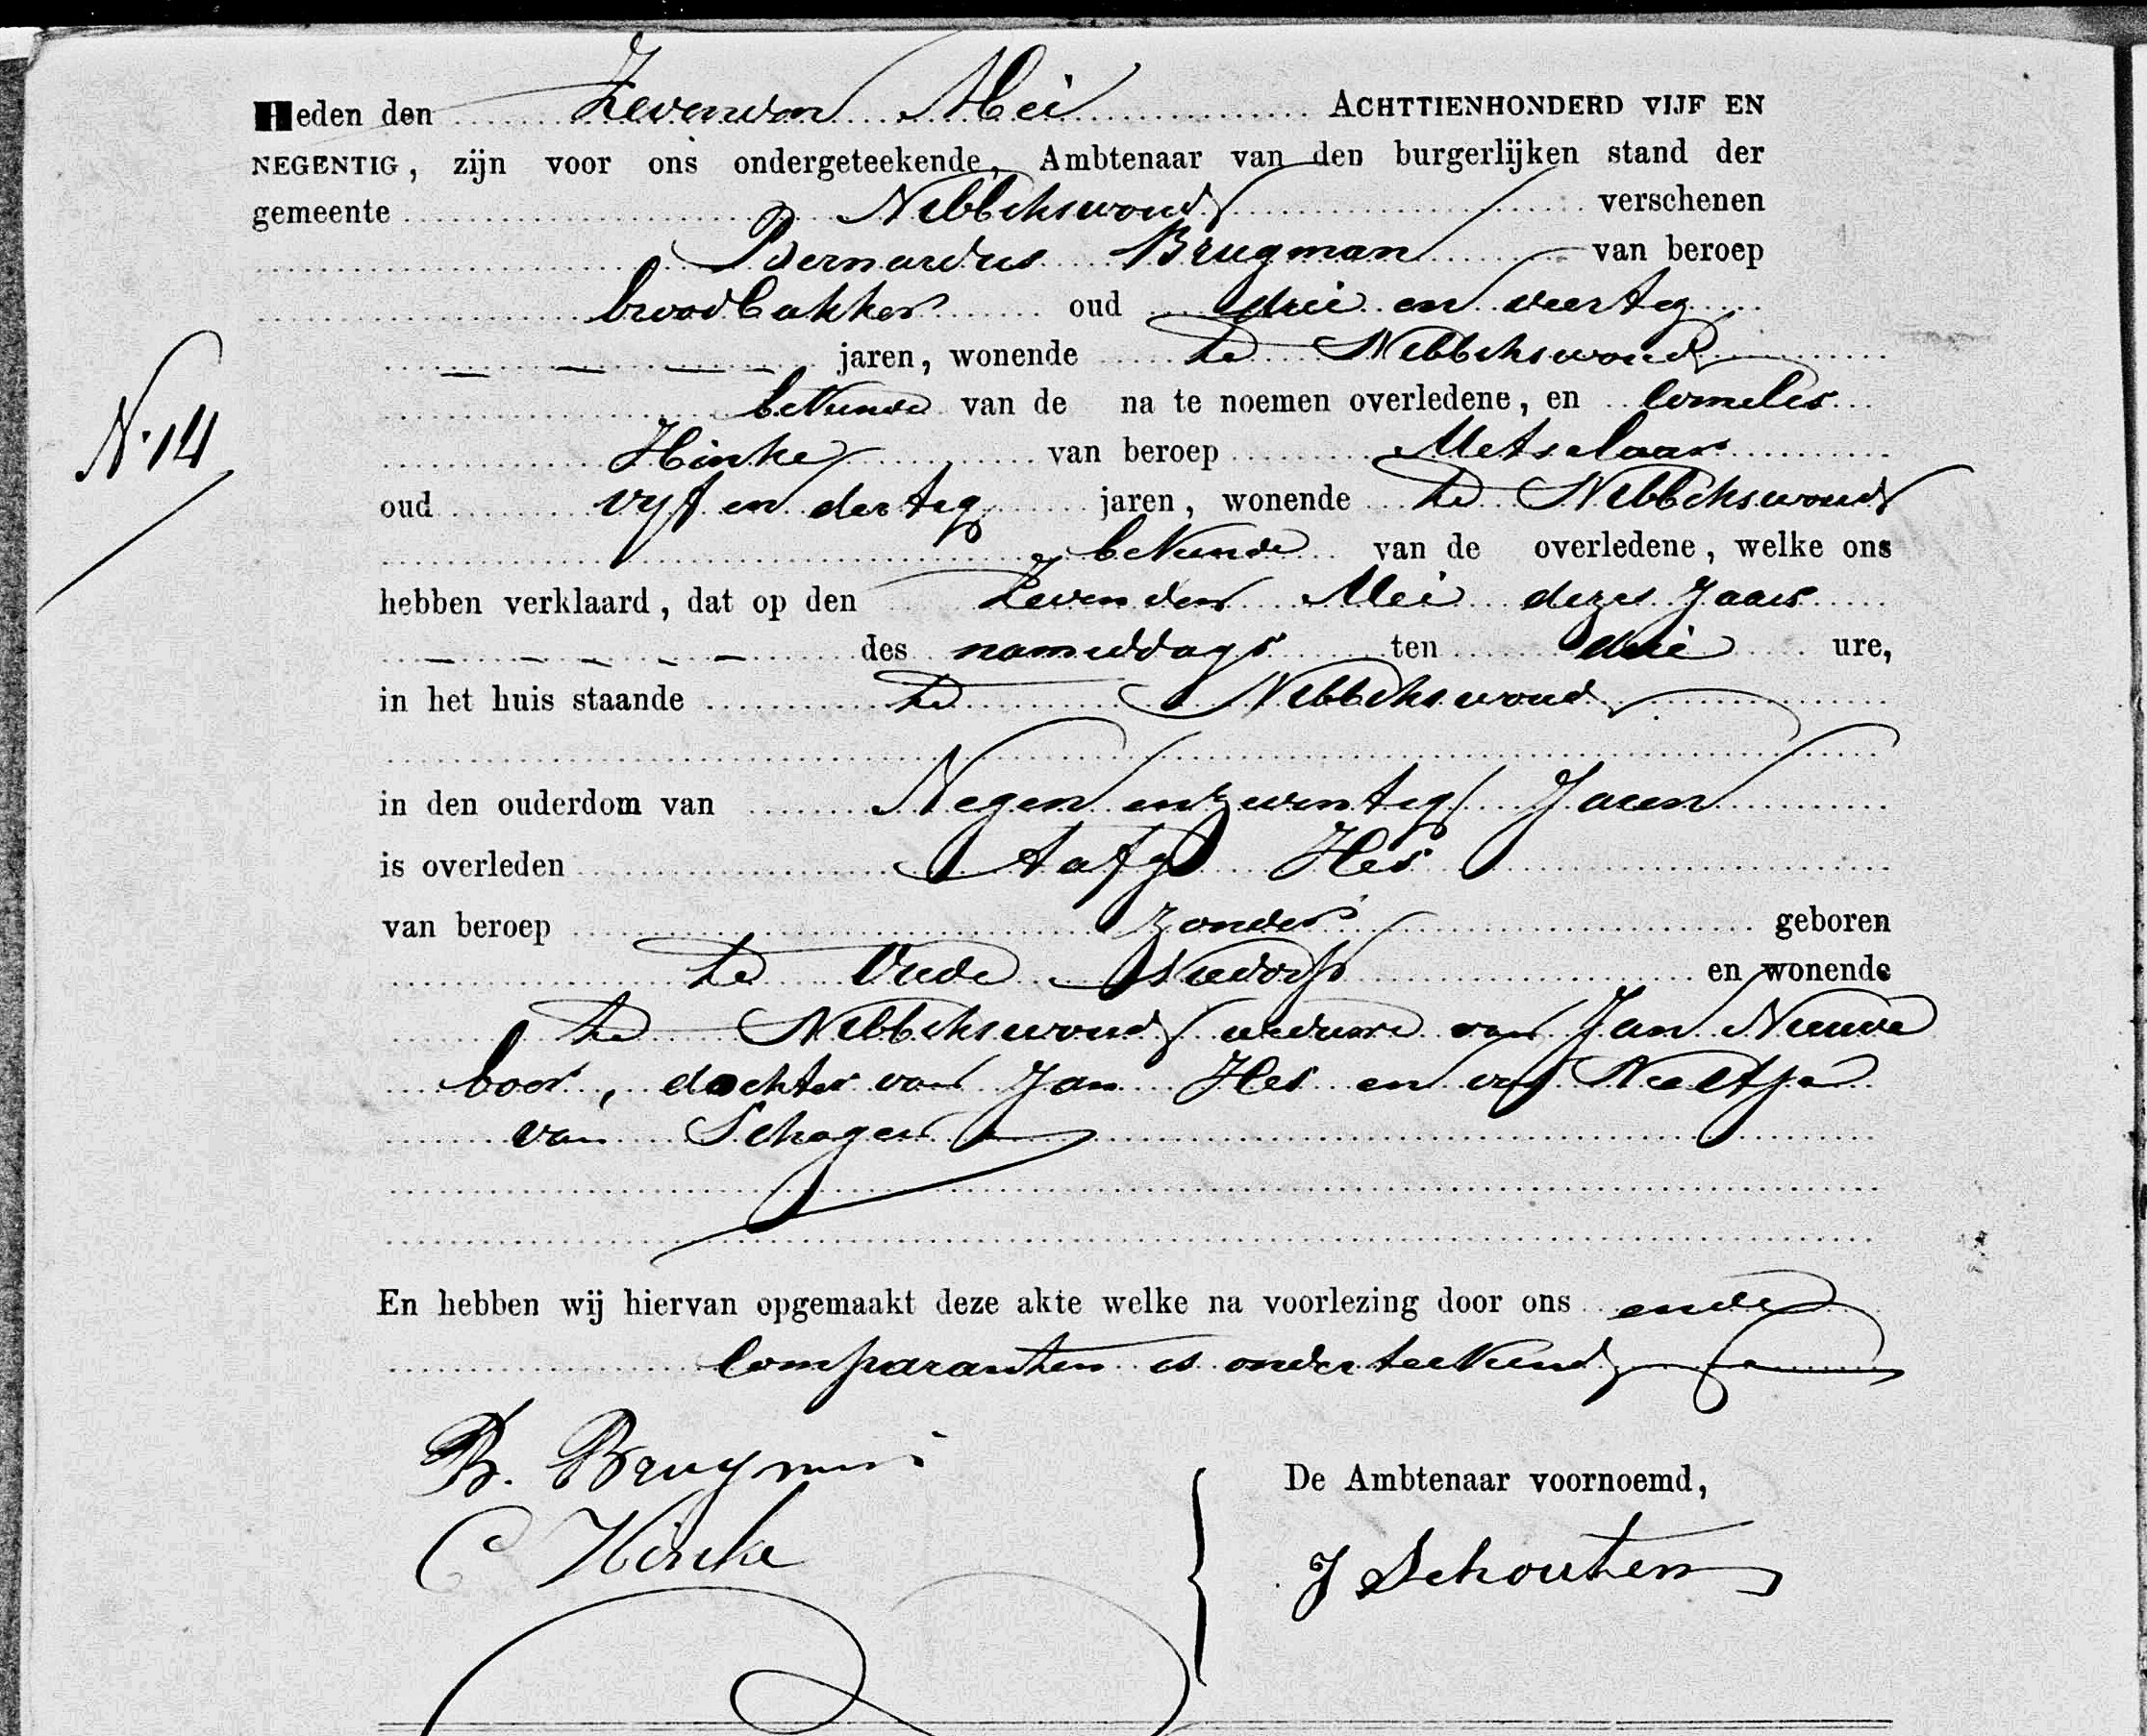 Heden den Zevenden Mei ACHTTIENHONDERD VIJF EN
NEGENTIG, zijn voor ons ondergeteekende, Ambtenaar van den burgerlijken stand der
gemeente Nibbikswoud verschenen
Bernardus Brugman van beroep
broodbakker oud drie en veertig
jaren, wonende te Nibbikswoud
bekende van de na te noemen overledene, en Cornelis
N. 14
Hinke van beroep Metselaar
oud vijf en dertig jaren, wonende te Nibbikswoud
bekende van de overledene, welke ons
hebben verklaard, dat op den Zevenden Mei dezes Jaars
des namiddags ten drie ure,
in het huis staande te Nibbikswoud
in den ouderdom van Negen en zeventig Jaren
is overleden Aafje Hes
van beroep zonder geboren
te Oude Niedorp en wonende
te Nibbikswoud weduwe van Jan Nieuwe
boer, dochter van Jan Hes en van Neeltje
van Schagen
En hebben wij hiervan opgemaakt deze akte welke na voorlezing door ons en de
Comparanten is onderteekend
B. Brugman
De Ambtenaar voornoemd,
C Hinke
J Schouten